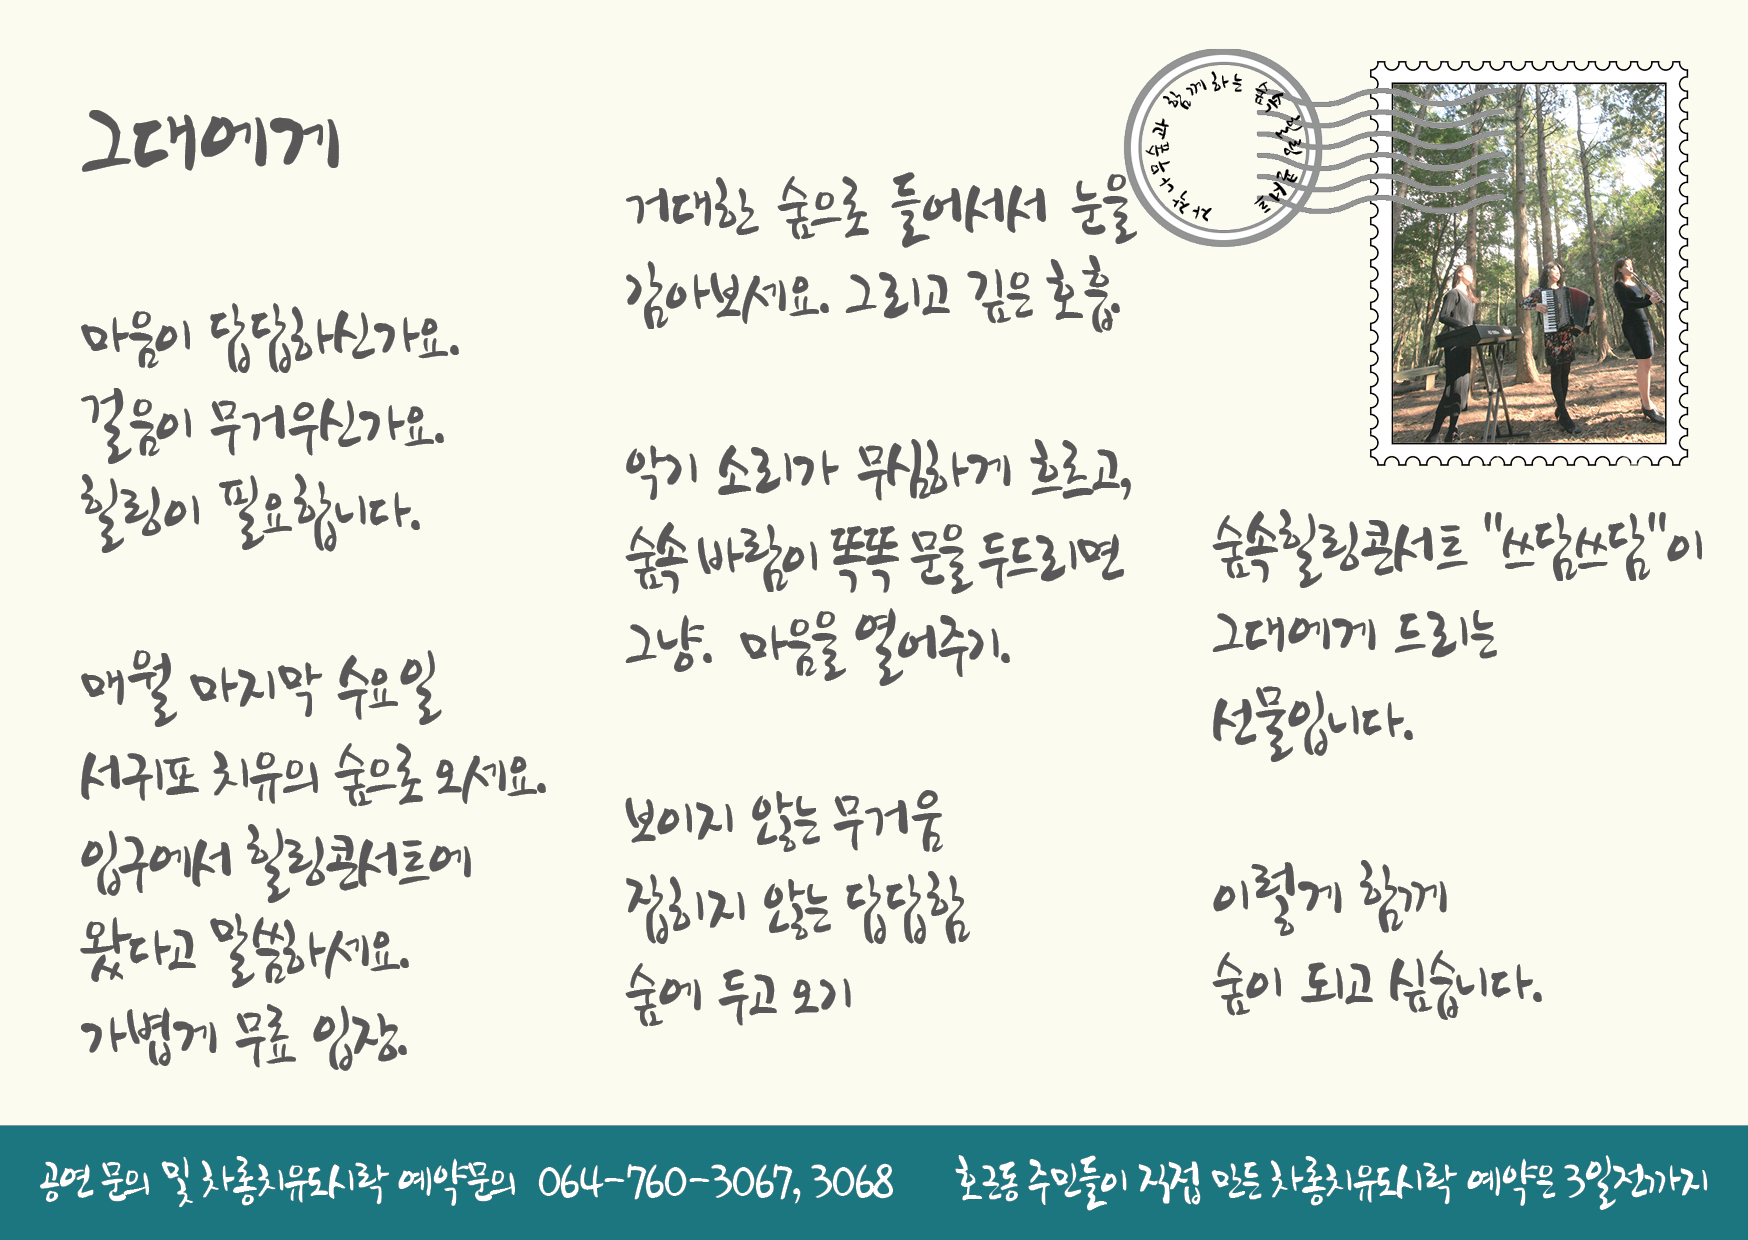 그대에게
마음이 답답하신가요.
걸음이 무거우신가요.
힐링이 필요합니다.
매월 마지막 수요일
서귀포 치유의 숲으로 오세요.
입구에서 힐링콘서트에
왔다고 말씀하세요.
가볍게 무료 입장.
거대한 숲으로 들어서서 눈을
감아보세요. 그리고 깊은 호흡.
악기 소리가 무심하게 흐르고,
숲속 바람이 똑똑 문을 두드리면
그냥. 마음을 열어주기.
보이지 않는 무거움
잡히지 않는 답답함
숲에 두고 오기
함께하는 숲속
숲힐링콘서트 "쓰담쓰담"이
그대에게 드리는
선물입니다.
이렇게 함께
숲이 되고 싶습니다.
공연 문의 및 차롱치유도시락 예약문의 064-760-3067, 3068
호근동 주민들이 직접 만든 차롱치유도시락 예약은 3일전까지